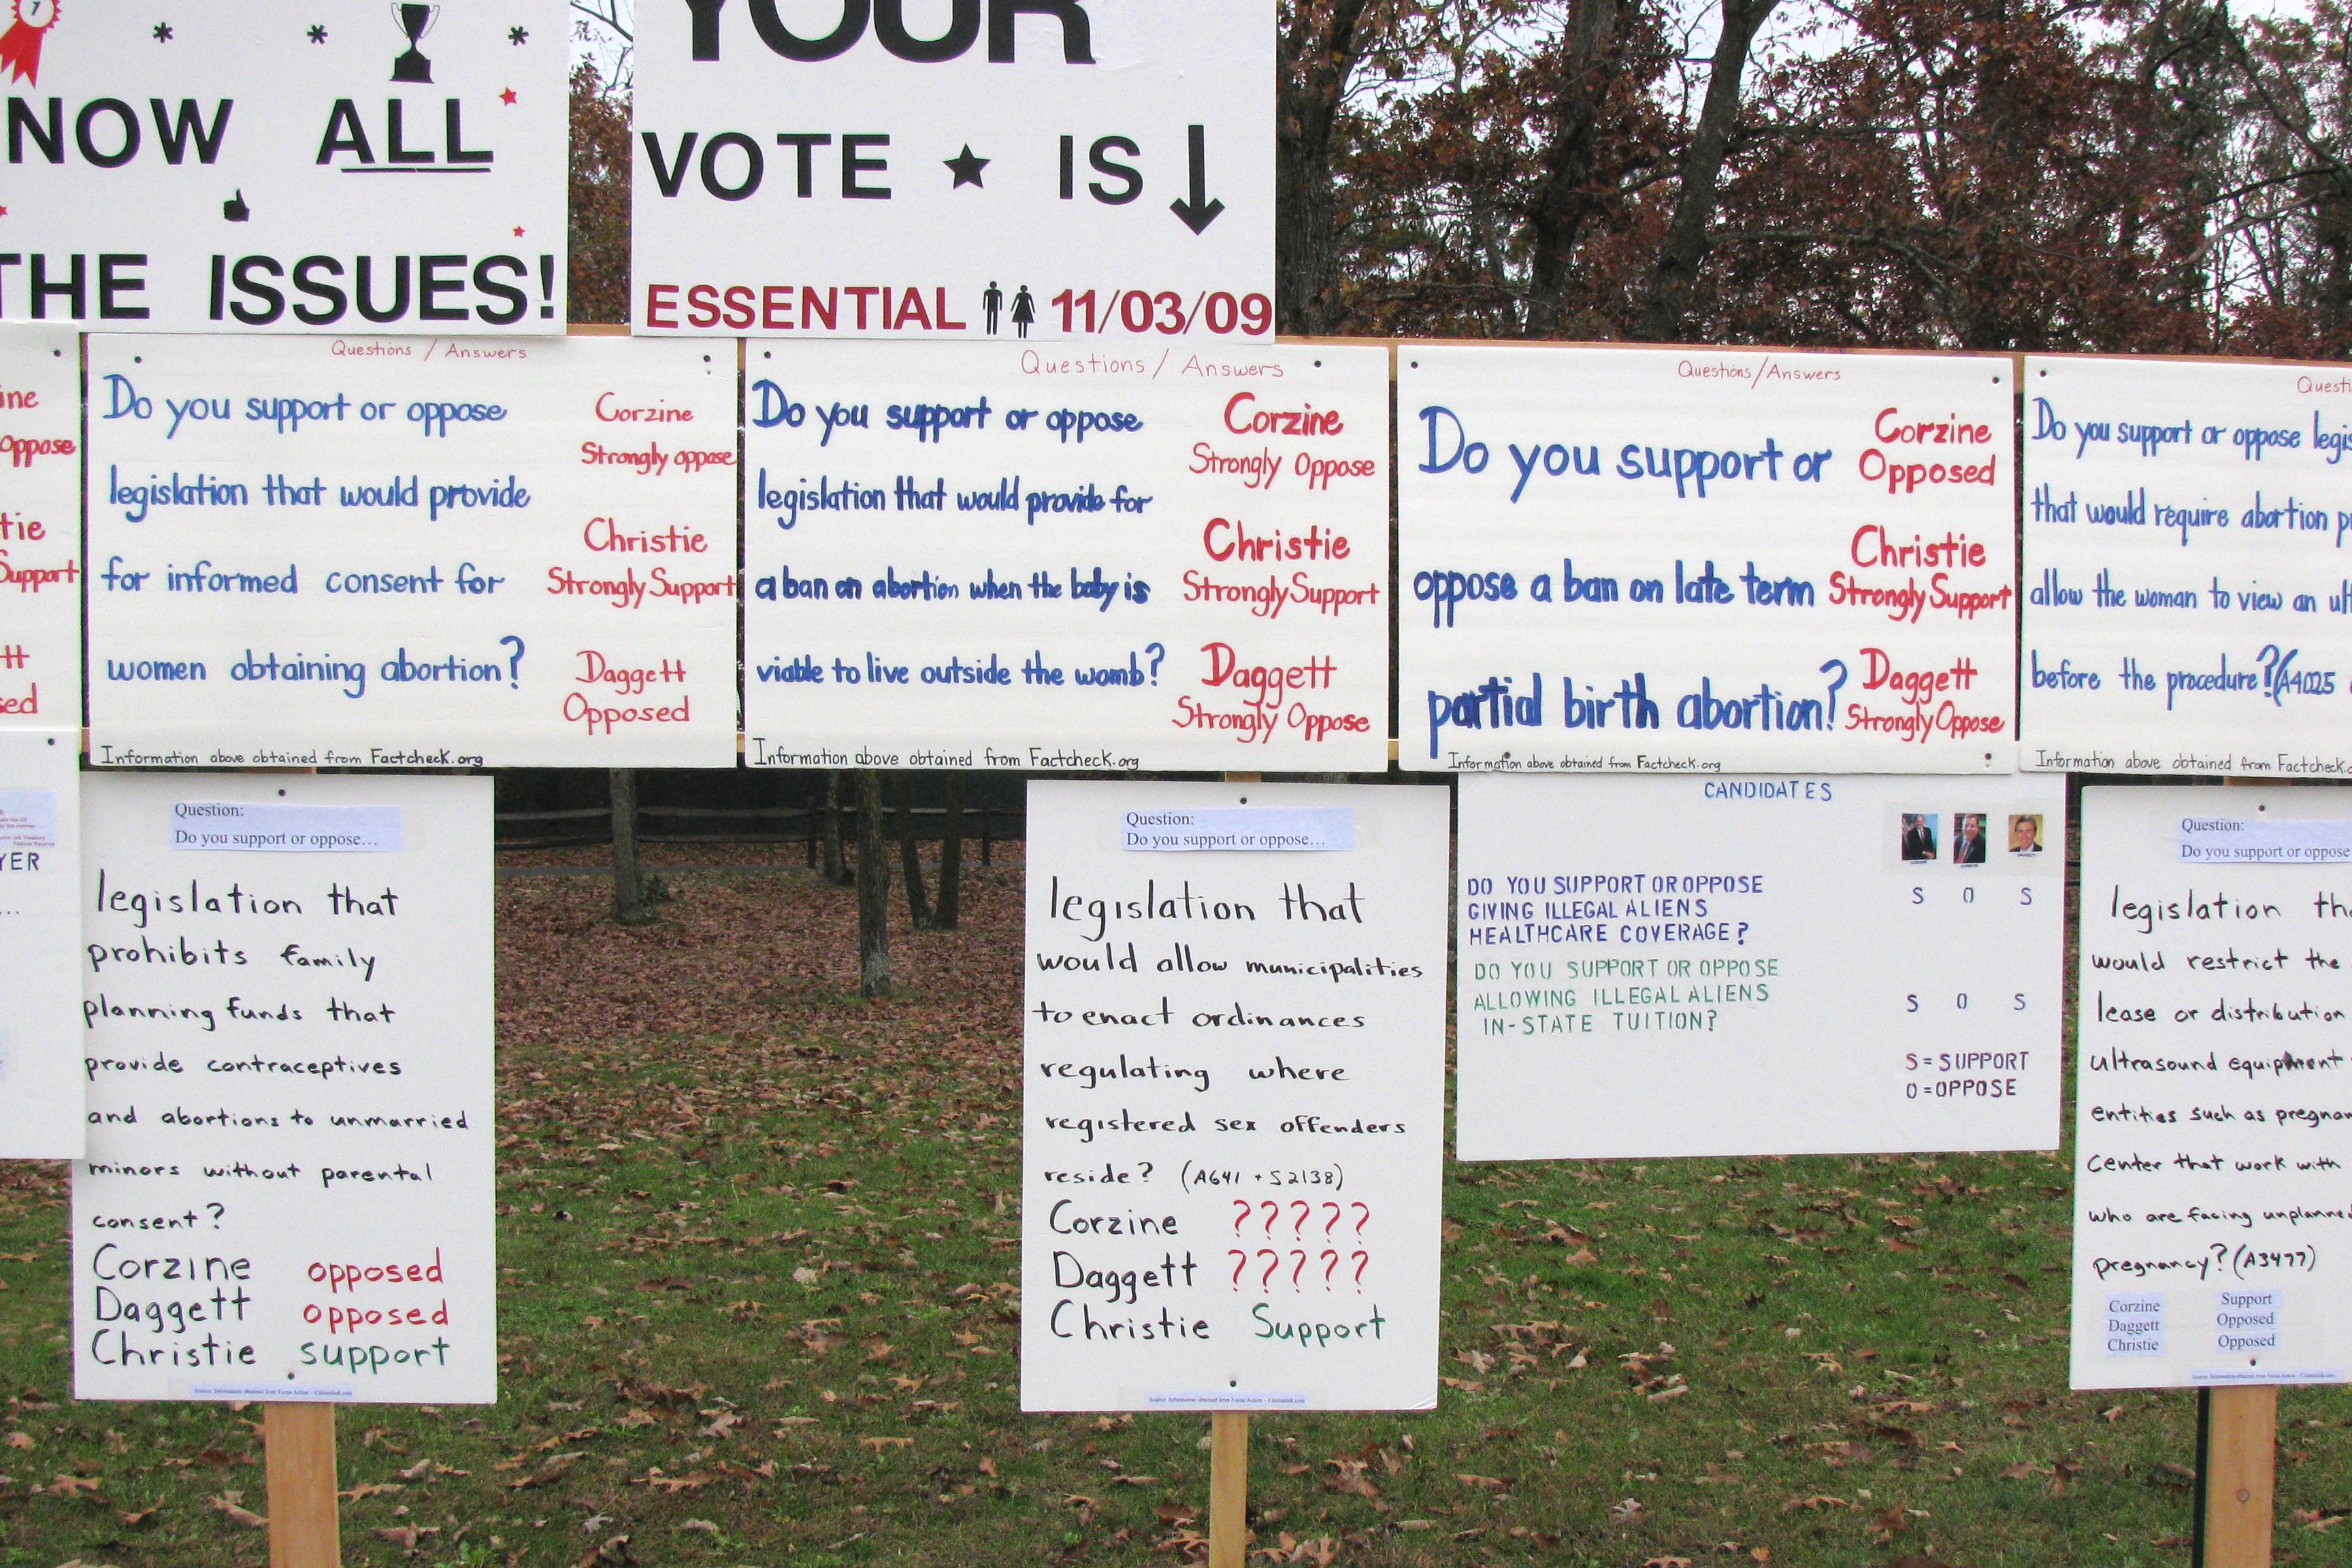 1
NOW ALL
THE ISSUES!
YOUR
VOTE ★ IS ↓
ESSENTIAL 11/03/09
ine
oppose
tie
Support
tt
sed
Questions / Answers
Do you support or oppose
legislation that would provide
for informed consent for
women obtaining abortion?
Corzine
Strongly oppose
Christie
Strongly Support
Daggett
Opposed
Information above obtained from Factcheck.org
Questions / Answers
Do you support or oppose
legislation that would provide for
a ban on abortion when the baby is
viable to live outside the womb?
Corzine
Strongly Oppose
Christie
Strongly Support
Daggett
Strongly Oppose
Information above obtained from Factcheck.org
Questions/Answers
Do you support or
oppose a ban on late term
partial birth abortion?
Corzine
Opposed
Christie
Strongly Support
Daggett
Strongly Oppose
Information above obtained from Factcheck.org
Questi
Do you support or oppose legis
that would require abortion p
allow the woman to view an ul
before the procedure? (A4025
Information above obtained from Factcheck.o
YER
...
Question:
Do you support or oppose...
legislation that
prohibits family
planning funds that
provide contraceptives
and abortions to unmarried
minors without parental
consent?
Corzine opposed
Daggett opposed
Christie support
Source: Information obtained from Focus Action - Citizenlink.com
Question:
Do you support or oppose...
legislation that
would allow municipalities
to enact ordinances
regulating where
registered sex offenders
reside? (A641 + S2138)
Corzine ?????
Daggett ?????
Christie Support
Source: Information obtained from Focus Action - Citizenlink.com
CANDIDATES
DO YOU SUPPORT OR OPPOSE
GIVING ILLEGAL ALIENS
HEALTHCARE COVERAGE?
S O S
DO YOU SUPPORT OR OPPOSE
ALLOWING ILLEGAL ALIENS
IN-STATE TUITION?
S O S
S = SUPPORT
O = OPPOSE
Question:
Do you support or oppose
legislation th
would restrict the
lease or distribution
ultrasound equipment
entities such as pregnan
center that work with
who are facing unplanned
pregnancy? (A3477)
Corzine Support
Daggett Opposed
Christie Opposed
Source: Information obtained from Focus Action - Citizenlink.com